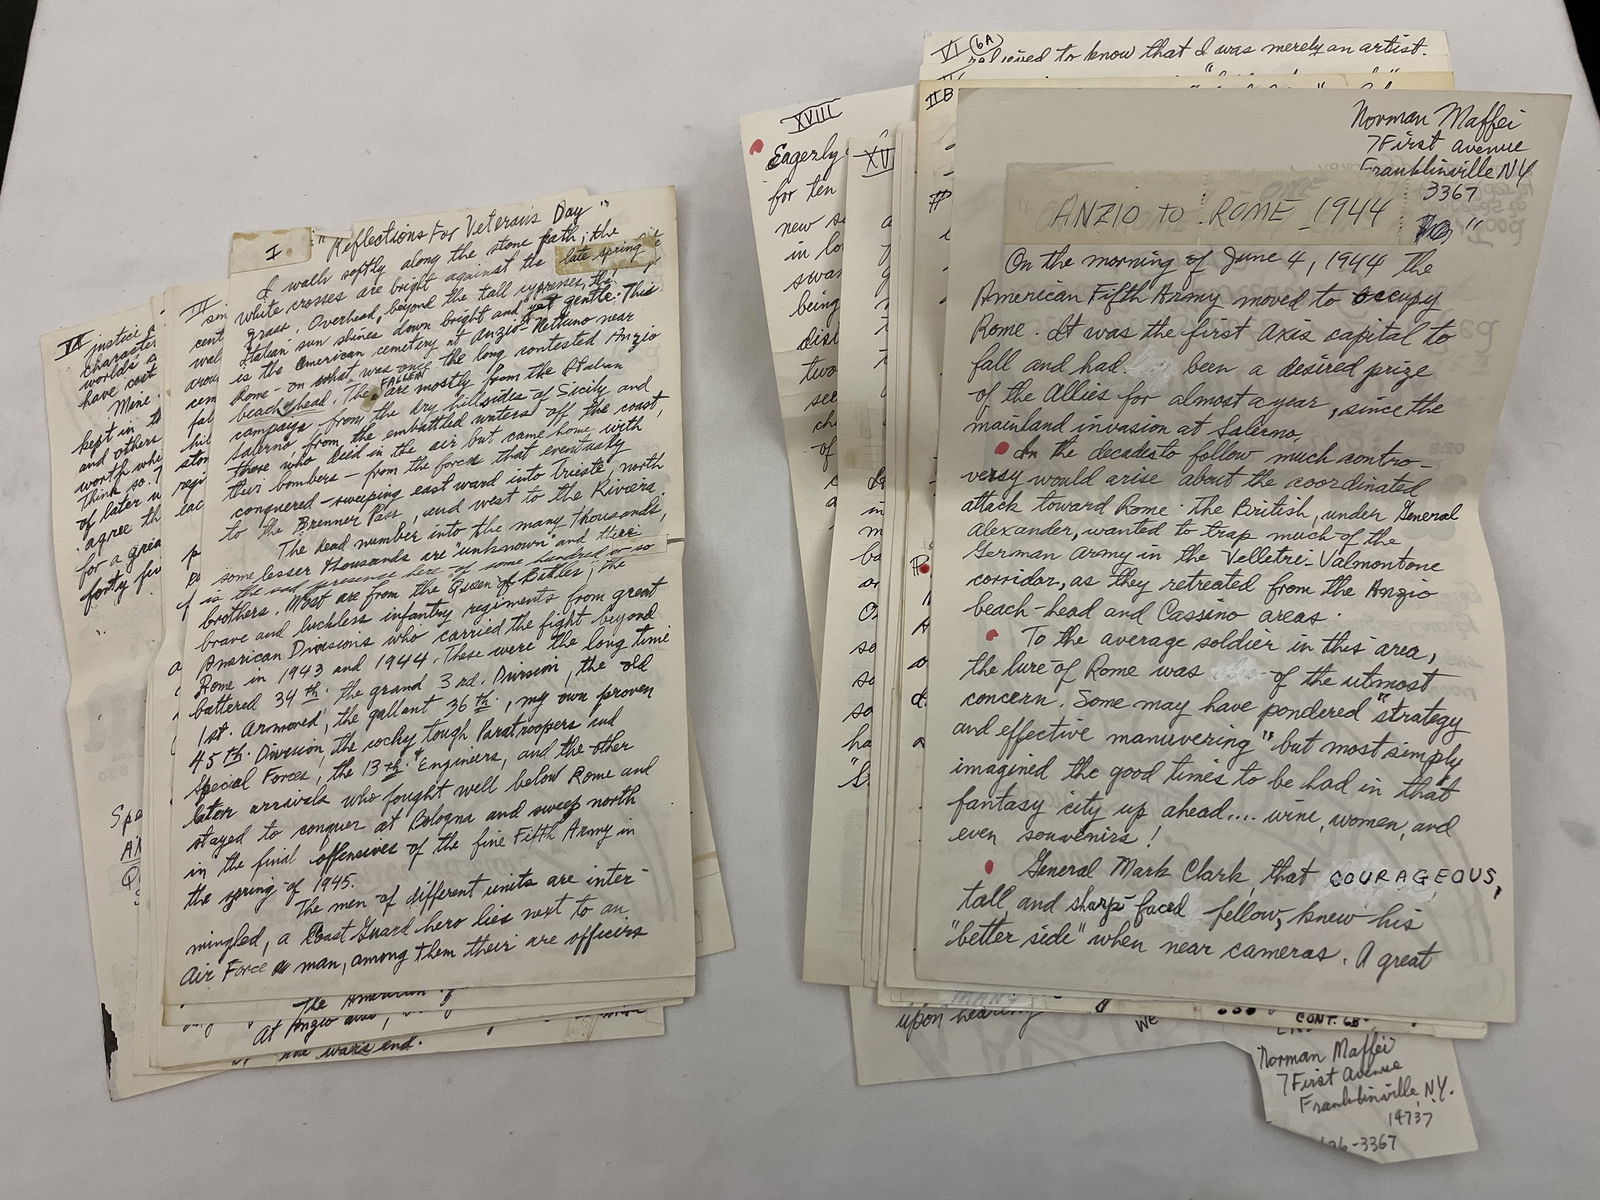 I
"Reflections For Veteran's Day"
I walk softly along the stone path; the
white crosses are bright against the late spring
grass. Overhead, beyond the tall cypresses, the
Italian sun shines down bright and yet gentle. This
is the American cemetery at Anzio-Nettuno near
Rome - on what was once the long contested Anzio
beach head. The FALLEN are mostly from the Italian
campaign from the dry hillsides of Sicily, and
Salerno, from the embattled waters off the coast,
those who died in the air but came home with
their bombers - from the forces that eventually
conquered - sweeping east ward into Trieste, north
to the Brenner Pass, and west to the Riviera.
The dead number into the many thousands,
some lesser thousands are "unknown" and there
is the sad presence here of some hundred or so
brothers. Most are from the Queen of Battles; the
brave and luckless infantry regiments from great
American Divisions who carried the fight beyond
Rome in 1943 and 1944. These were the long time
battered 34th, the grand 3rd. Division, the old
1st. Armored, the gallant 36th, my own proven
45th. Division, the cocky tough Paratroopers and
Special Forces, the 13th Engineers, and the other
later arrivals who fought well below Rome and
stayed to conquer at Bologna and sweep north
in the final offensives of the fine Fifth Army in
the spring of 1945.
The men of different units are inter-
mingled, a Coast Guard hero lies next to an
Air Force man, among them their are officers
The American
At Anzio also,
the wars end.
VI justice
character
worlds
have cost
Mine
kept in
and others
worth whi
Think so.
of later
agree th
for a grea
forty fiv
II
VI 6A
relieved to know that I was merely an artist.
II B
XVIII
Eagerly
for ten
new
in lo
swa
being
dist
two
see
of
XV
Norman Maffei
7 First Avenue
Franklinville NY
3367
"ANZIO to ROME 1944"
On the morning of June 4, 1944 the
American Fifth Army moved to occupy
Rome. It was the first Axis capital to
fall and had been a desired prize
of the Allies for almost a year, since the
mainland invasion at Salerno.
In the decades to follow much contro-
versy would arise about the coordinated
attack toward Rome. The British, under General
Alexander, wanted to trap much of the
German Army in the Velletri-Valmontone
corridor, as they retreated from the Anzio
beach-head and Cassino areas.
To the average soldier in this area,
the lure of Rome was of the utmost
concern. Some may have pondered "strategy
and effective manuvering" but most simply
imagined the good times to be had in that
fantasy city up ahead.... wine, women, and
even souvenirs!
General Mark Clark, that COURAGEOUS,
tall and sharp faced fellow, knew his
"better side" when near cameras. A great
MANY
upon hearing
We
CONT. 6B
Norman Maffei
7 First Avenue
Franklinville, N.Y.
14737
-3367